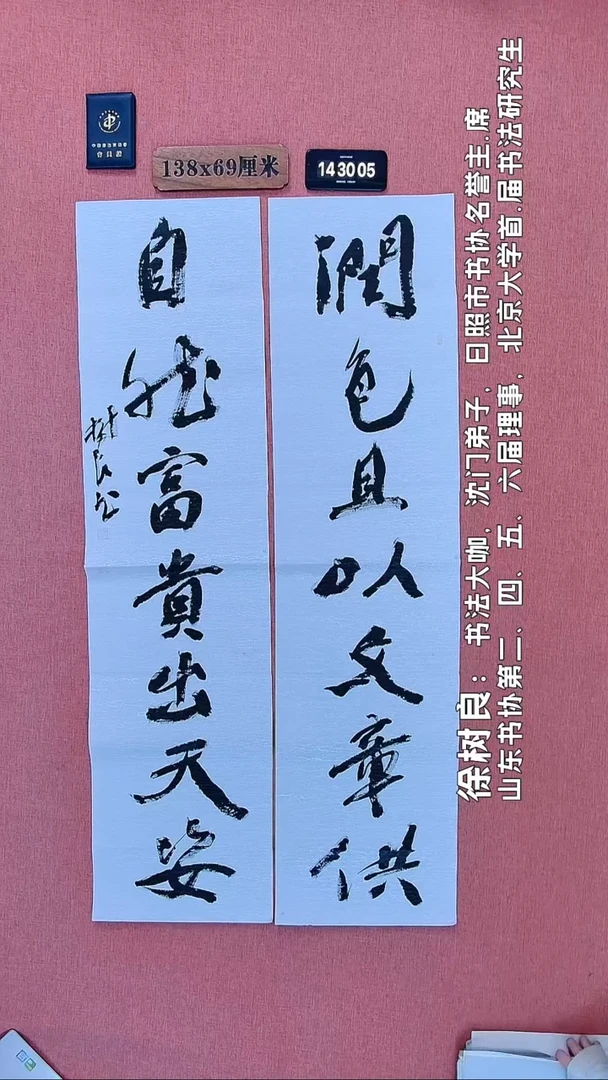 中国书法家协会
会员证
138x69厘米
14 30 05
潤色且以文章供
自然富貴出天姿
樹良書
徐树良：书法大咖，沈门弟子，日照市书协名誉主.席
山东书协第二、四、五、六届理事，北京大学首.届书法研究生